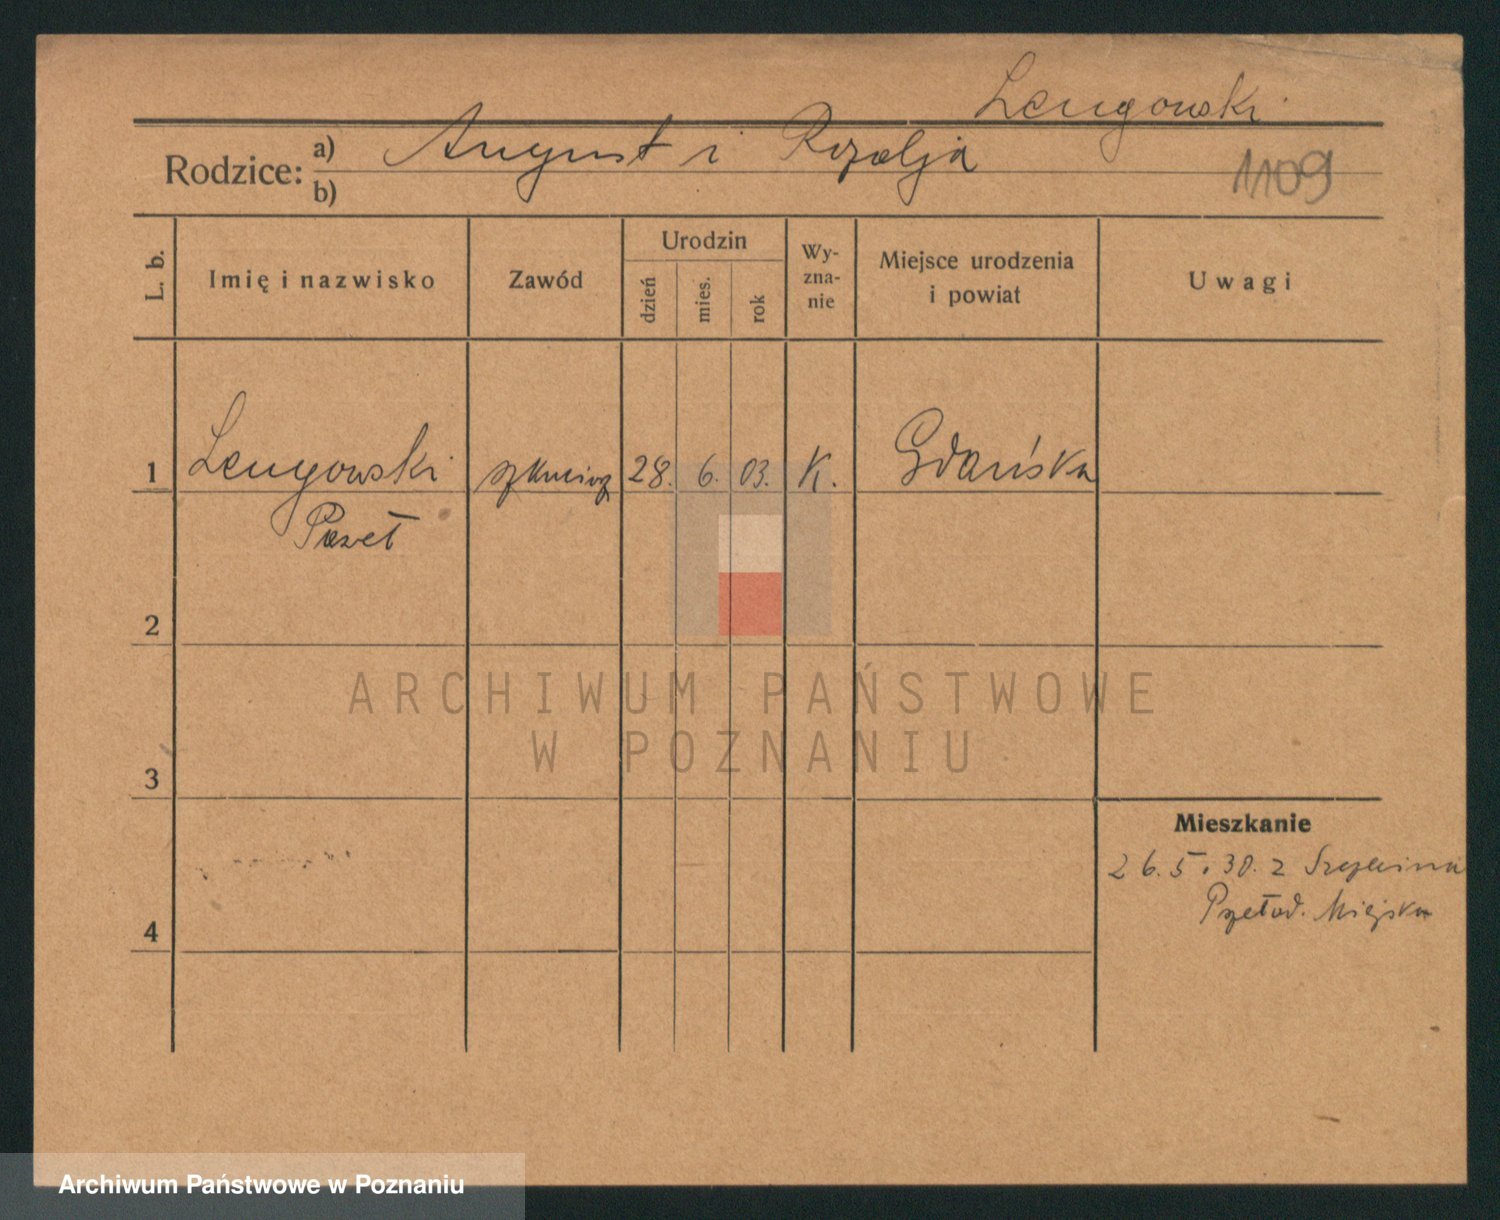 Lengowski
Rodzice: a) August i Rozalja
1109
b)
L. b.
Imię i nazwisko
Zawód
Urodzin
dzień
mies.
rok
Wy-
zna-
nie
Miejsce urodzenia
i powiat
Uwagi
1 Lengowski 28. 6. 03. K. Gdańska
Paweł
2
ARCHIWUM PAŃSTWOWE
W POZNANIU
3
Mieszkanie
26.5.30. z
Miejska
4
Archiwum Państwowe w Poznaniu